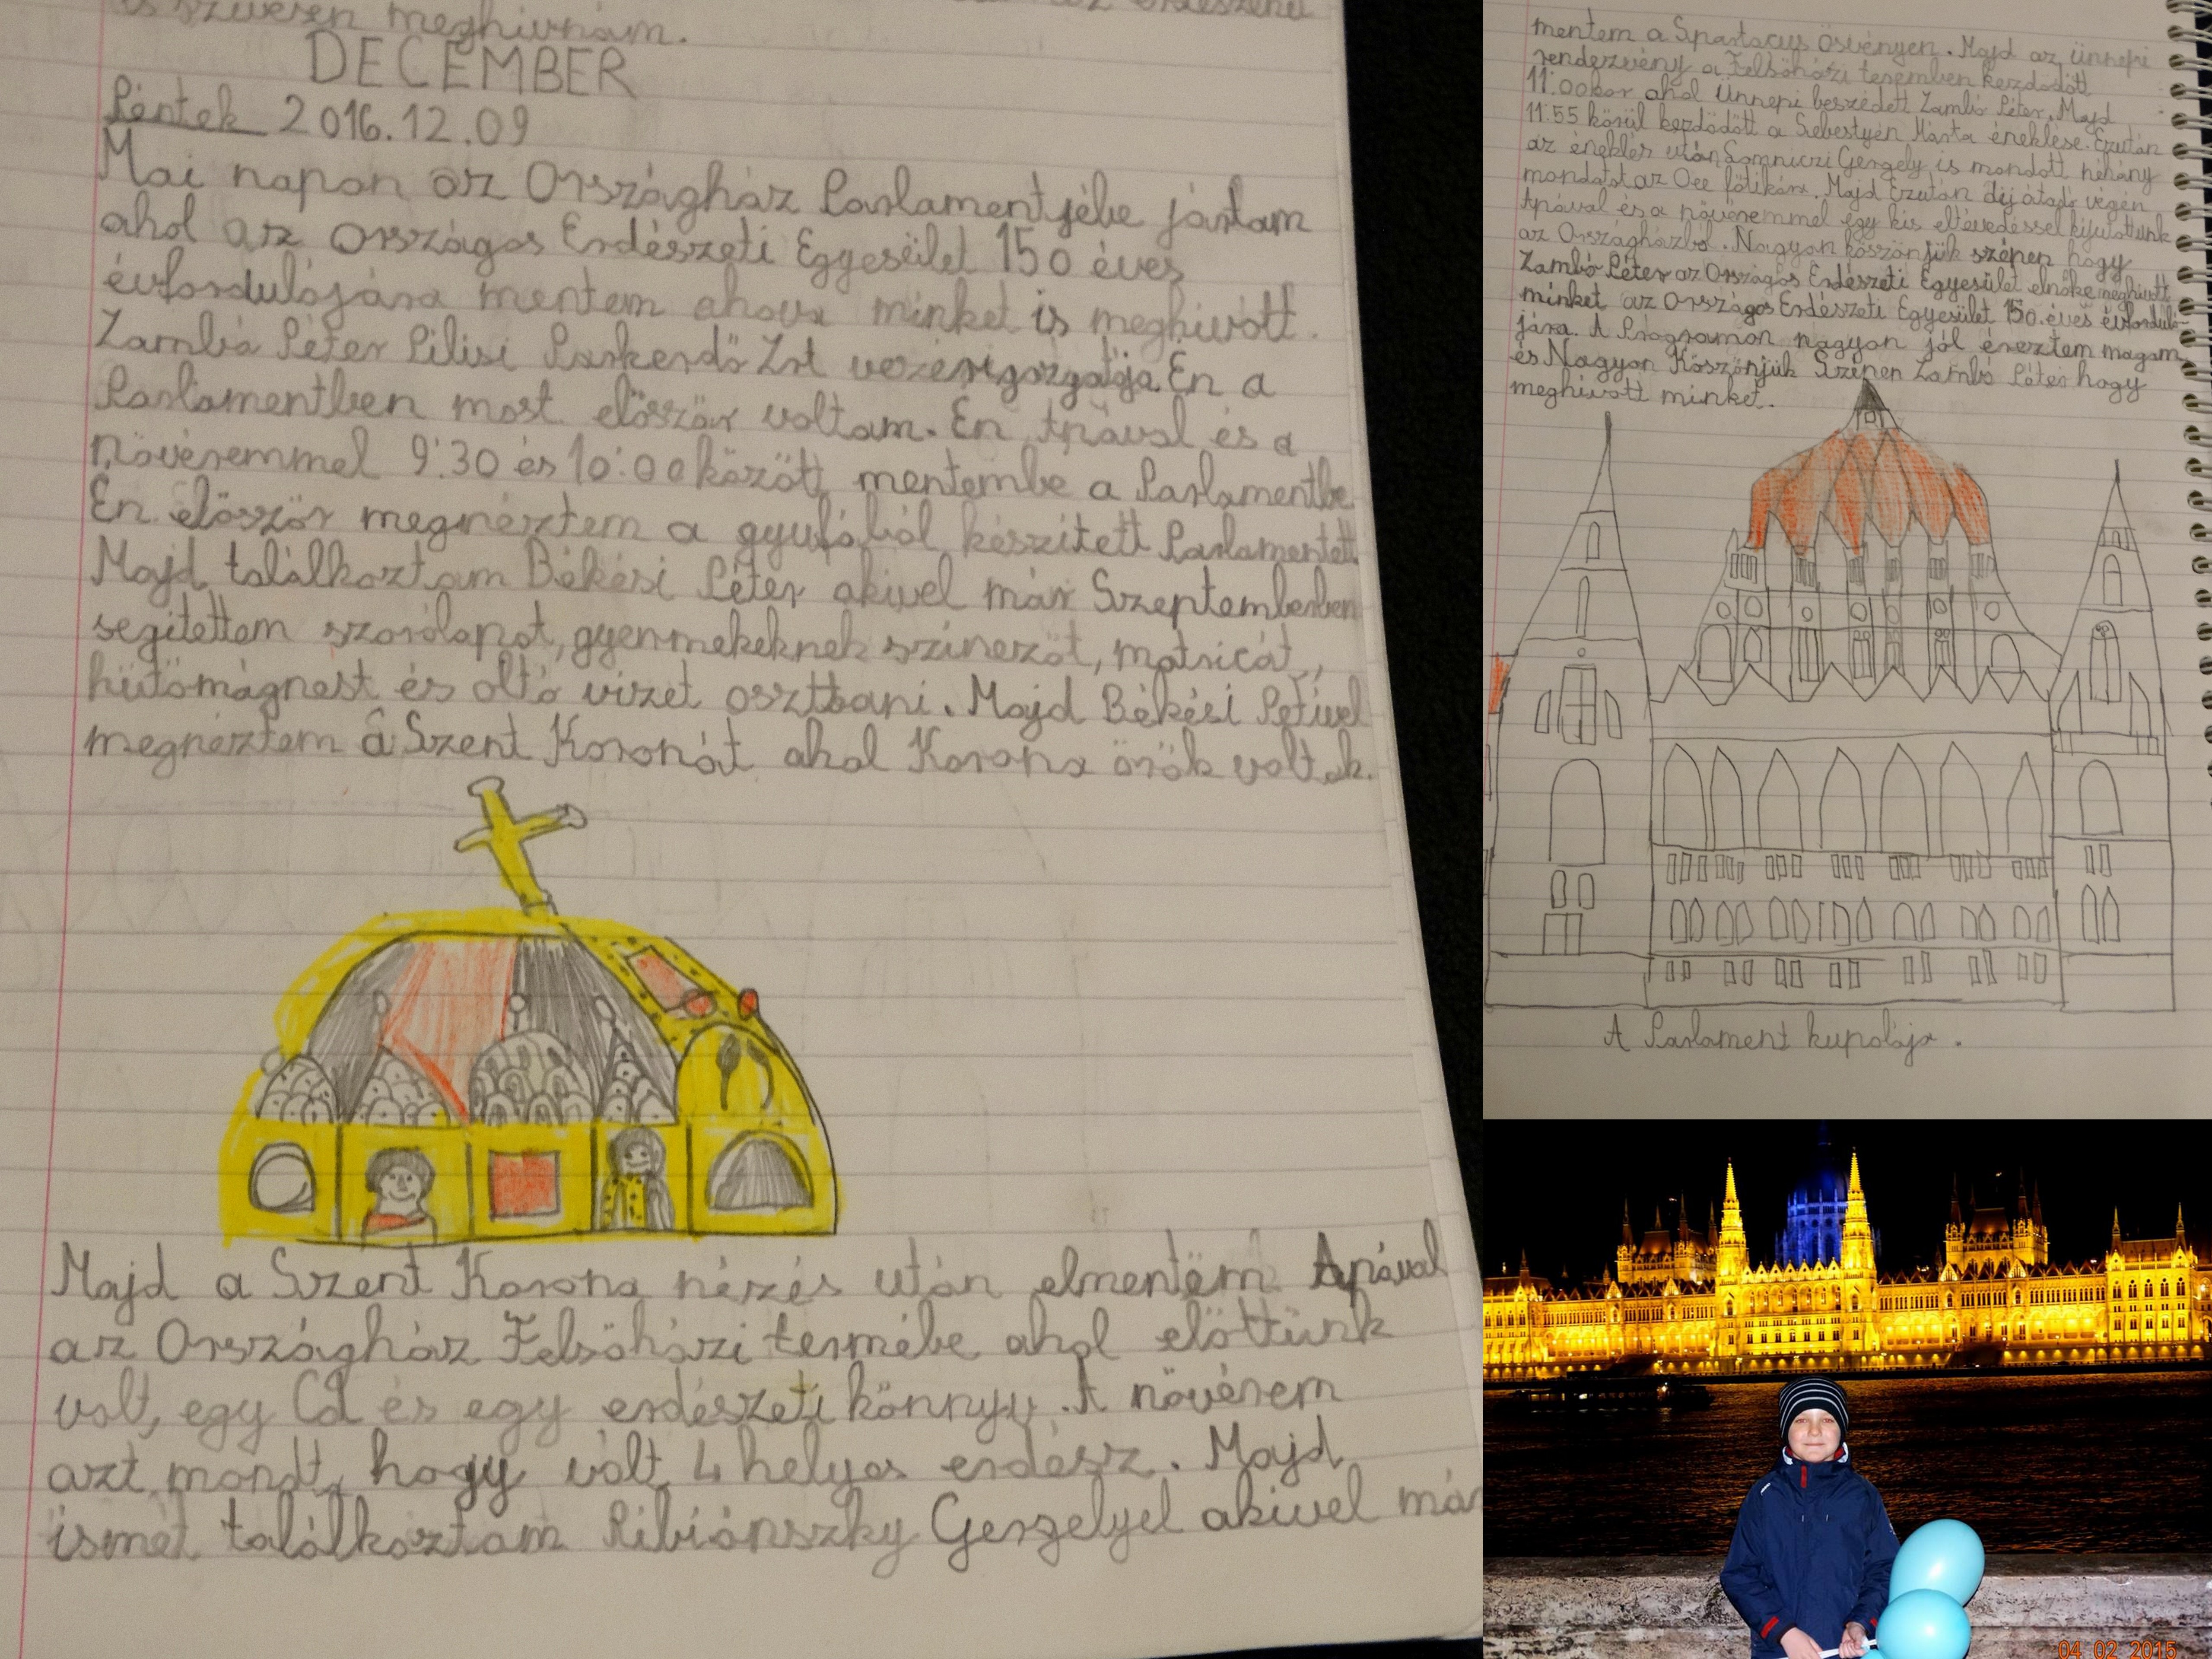 is szívesen meghívnám.
DECEMBER
Péntek 2016.12.09
Mai napon az Országház Parlamentjébe jártam
ahol az Országos Erdészeti Egyesület 150 éves
évfordulójára mentem ahova minket is meghívott.
Zambó Péter Pilisi Parkerdő Zrt vezérigazgatója. Én a
Parlamentben most először voltam. Én Apával és a
növéremmel 9:30 és 10:00 között mentembe a Parlamentbe.
Én először megnéztem a gyufából készített Parlamentett
Majd találkoztam Békési Péter akivel már Szeptemberben
segítettem szorólapot, gyermekeknek színezőt, matricát,
hűtőmágnest és oltó vizet osztani. Majd Békési Petivel
megnéztem a Szent Koronát ahol Korona örök voltak.
Majd a Szent Korona nézés után elmentem Apával
az Országház Felsőházi termébe ahol előttünk
volt, egy Cd és egy erdészeti könnyv. A növérem
azt mondt, hogy volt 4 helyes erdész. Majd
ismét találkoztam Ribiánszky Gergelyel akivel már
mentem a Spartacus ösvényen. Majd az ünnepi
rendezvény a Felsőházi teremben kezdődött
11:00kor ahol Ünnepi beszédett Zambó Péter. Majd
11:55 körül kezdődött a Sebestyén Márta éneklése. Ezután
az éneklés után Lomniczi Gergely is mondott néhány
mondatot az Oee főtikára. Majd Ezután díj átadó végén
Apával és a növéremmel egy kis eltévedéssel kijutottunk
az Országházból. Nagyon köszönjük szépen hogy
Zambó Péter az Országos Erdészeti Egyesület elnöke meghívott
minket az Országos Erdészeti Egyesület 150. éves évforduló-
jára. A Programon nagyon jól éreztem magam
és Nagyon Köszönjük Szépen Zambó Péter hogy
meghívott minket.
A Parlament kupolája.
04 02 2015